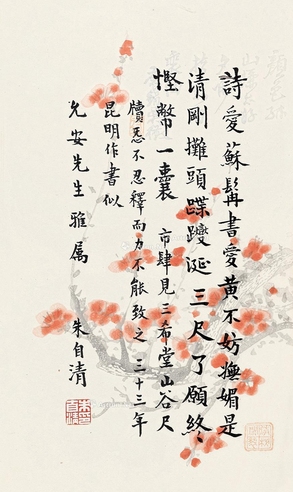 詩愛蘇髯書愛黃不妨撫媚是
清剛攤頭蹀躞涎三尺了願終
慳幣一囊 市肆見三希堂山谷尺
牘愛不忍釋而力不能致之 三十三年
昆明作書似
允安先生雅屬
朱自清